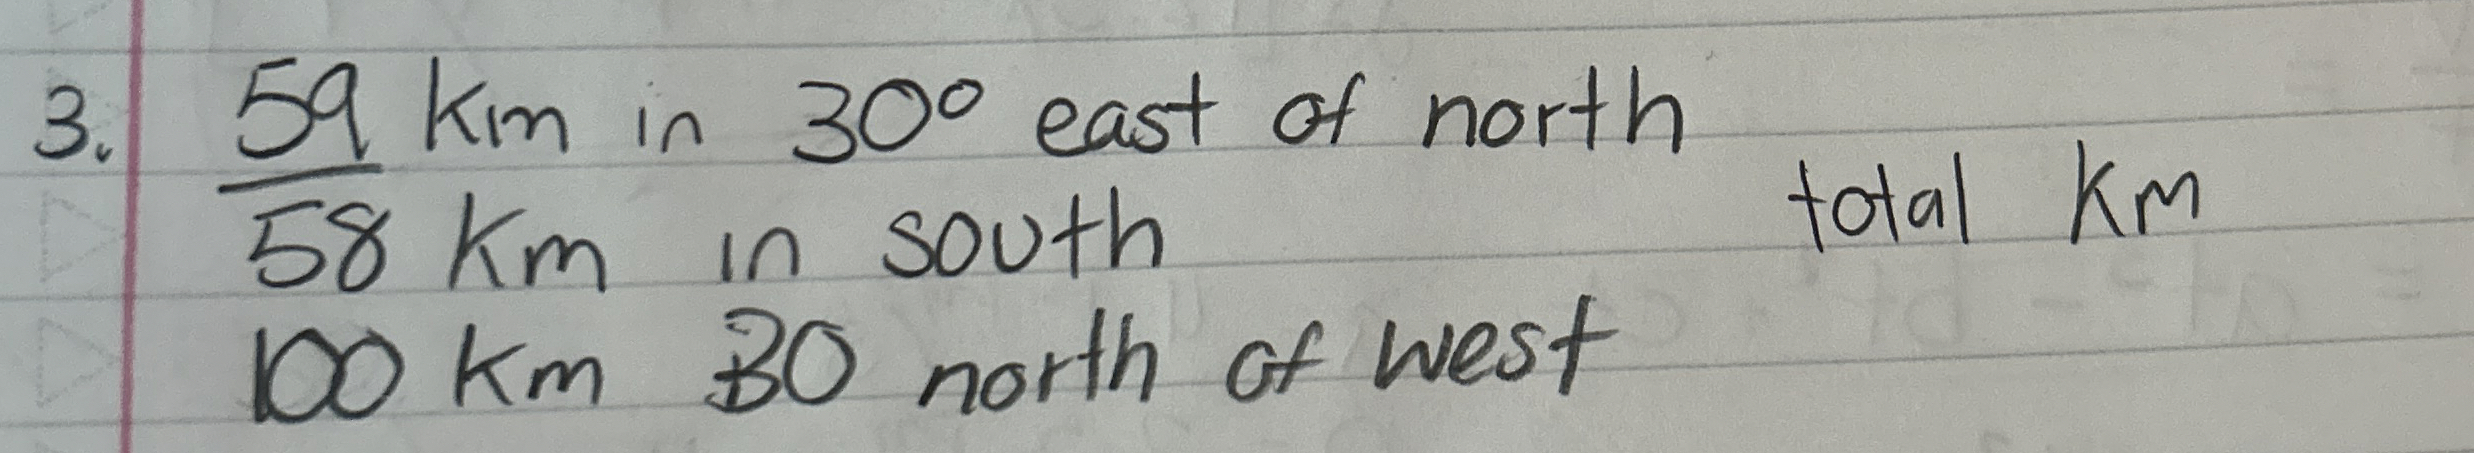 3. 59 km in 30° east of north
total km
58 km in south
100 km 30 north of west